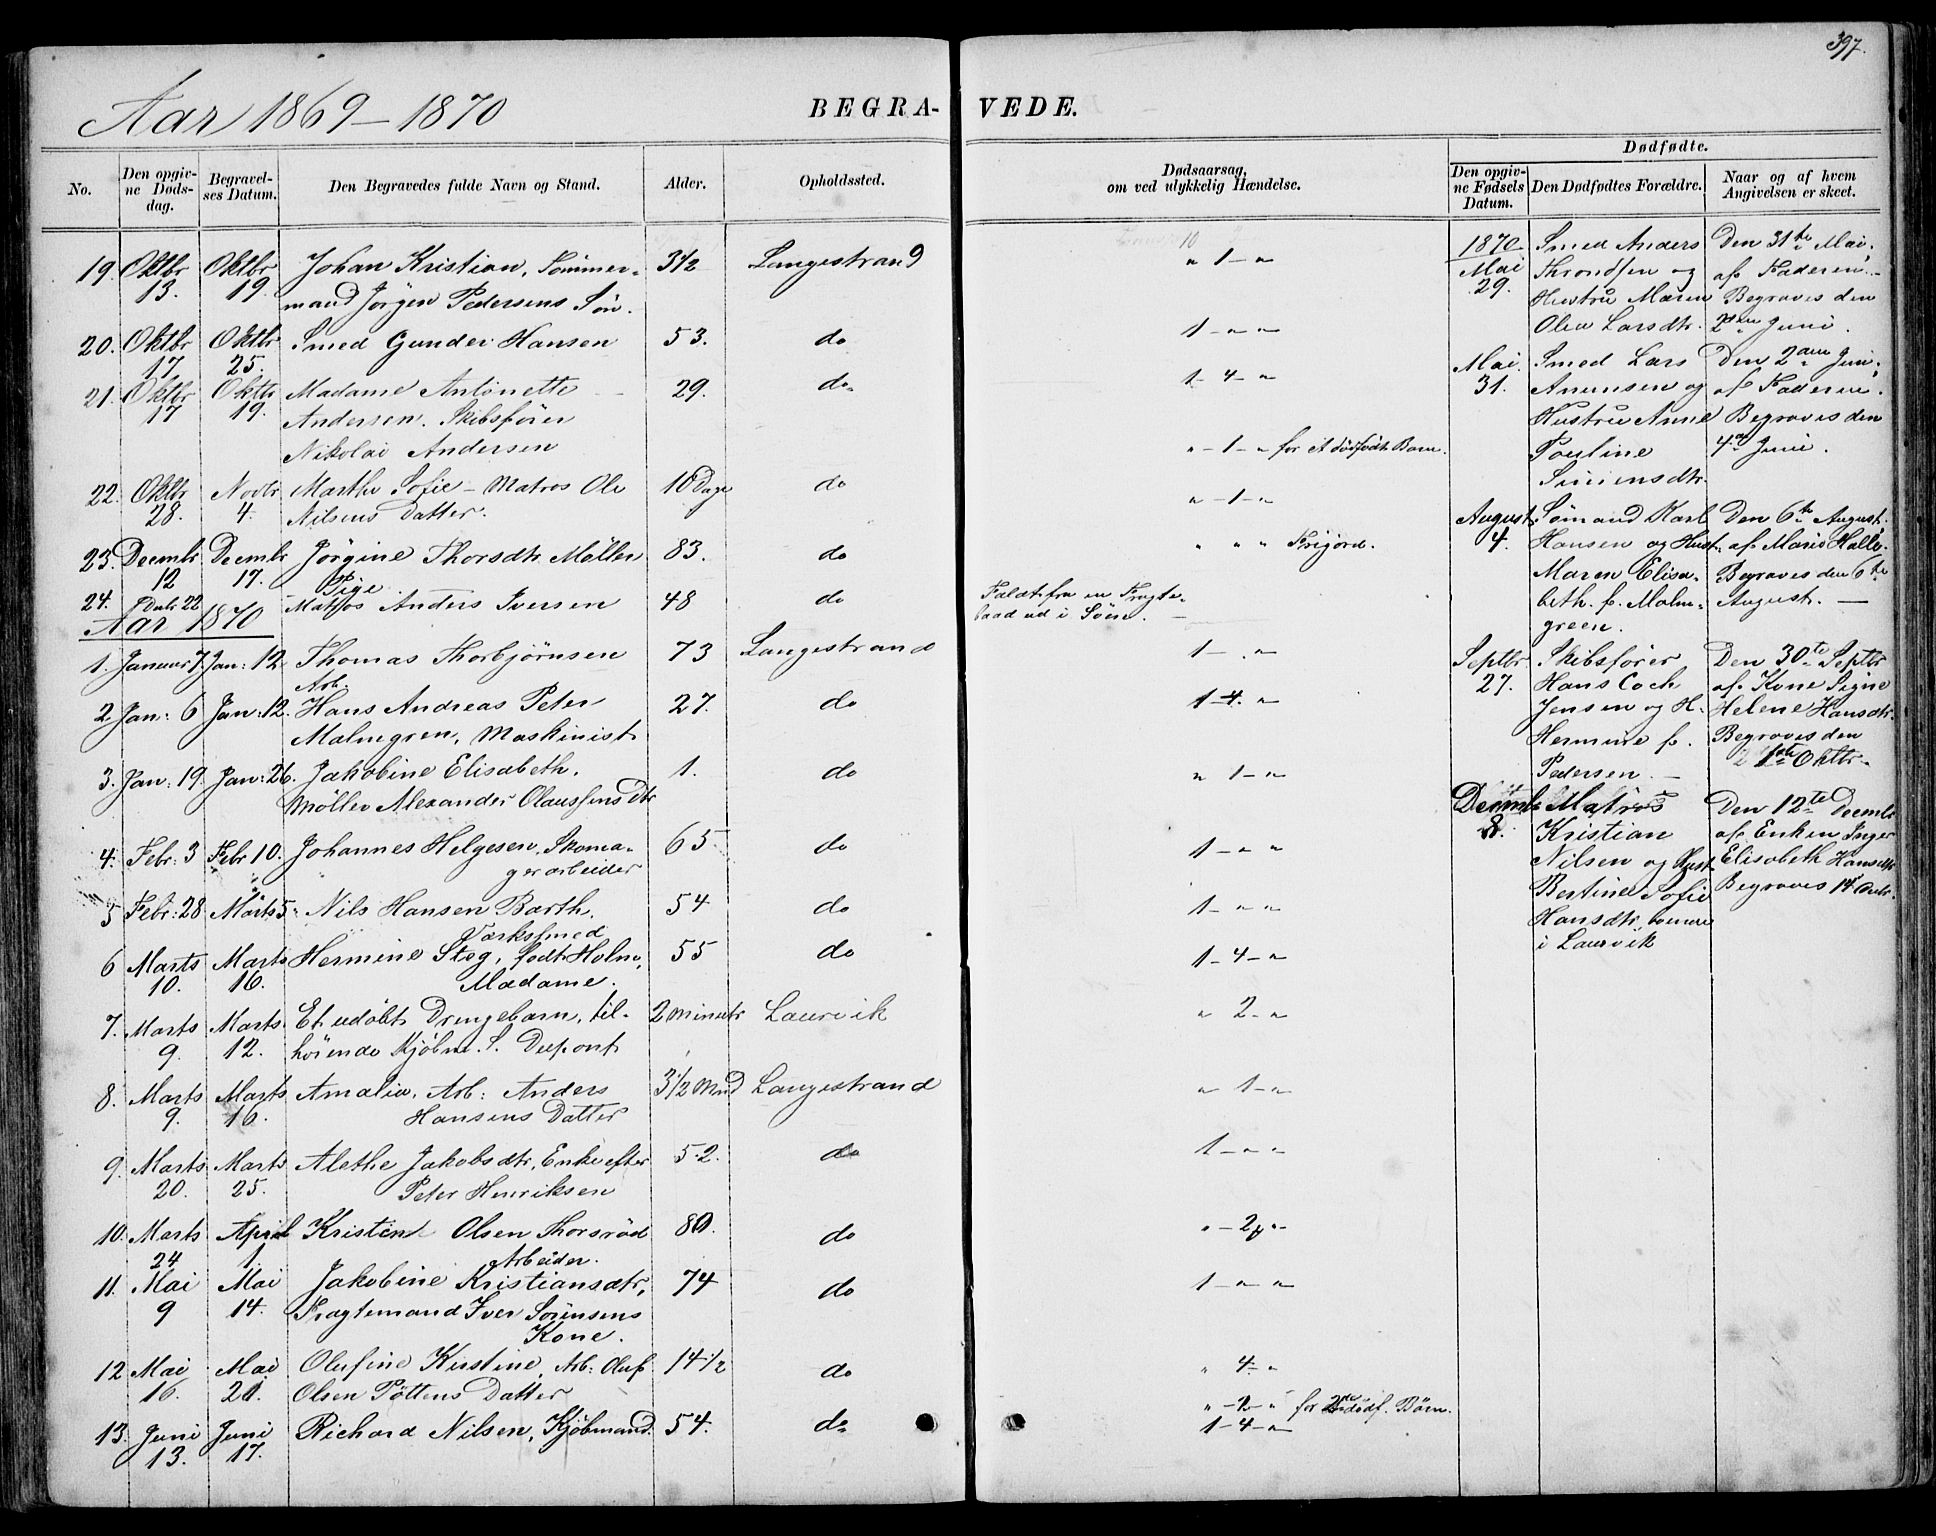 397.
Aar 1869 – 1870
BEGRA- VEDE.
No.
Den opgivne Dødsdag.
Begravelses Datum.
Den Begravedes fulde Navn og Stand.
Alder.
Opholdssted.
Dødsaarsag, om ved ulykkelig Hændelse.
Dødfødte.
Den opgivne Fødsels Datum.
Den Dødfødtes Forældre.
Naar og af hvem Angivelsen er skeet.
19. Oktbr 13. Oktbr 19. Johan Kristian, Tømmer- 3 1/2 Langestrand " 1 – "
mand Jørgen Pedersens Søn.
20. Oktbr 17 Oktbr 25. Smed Gunder Hansen 53. do 1 – " "
21. Oktbr 17 Oktbr 19. Madame Antonette 29. do 1 – 4 – "
Andersen. Skibsfører
Nikolai Andersen
" – 1 – " for et dødfødt Barn.
22. Oktbr 28. Novbr 4. Marthe Sofie – Matros Ole 10 Dage do " – 1 – "
Nilsens Datter.
23. Decembr 12 Decembr 17. Jørgine Thorsdtr. Møller 83. do " " " Frijord.
Pige
24. Datr 22 Matros Anders Iversen 48 do Faldt fra en Fragte-
baad ud i Søen.
Aar 1870
1. Januar 7. Jan: 12 Thomas Thorbjørnsen 73 Langestrand 1 – . "
Arb.
2. Jan: 6 Jan: 12. Hans Andreas Peter 27. do 1 – 4. "
Malmgren, Maskinist
3. Jan: 19. Jan: 26. Jakobine Elisabeth. 1. do " 1 – "
Møller Alexander Olaussens dtr
4. Febr: 3 Febr 10. Johannes Helgesen, Skoma- 65. do 1 – " "
gerarbeider
5 Febr: 28 Marts 5. Nils Hansen Barth. 54 do 1 – " "
Værksmed
6 Marts 10. Marts 16. Hermine Steg, født Holm, 55 do 1 – 4 – "
Madame.
7. Marts 9. Marts 12. Et udøbt Drengebarn, til- 2 minutr Laurvik " 2 – "
hørende Kjøbm. S. Dupont
8. Marts 9. Marts 16. Amalia, Arb: Anders 3 1/2 Mnd Langestrand " 1 – "
Hansens Datter
9. Marts 20. Marts 25. Alethe Jakobsdtr, Enke efter 52. do 1 – " "
Peter Henriksen
10. Marts 24 April 1. Kristen Olsen Thorsrød 80. do " – 2 "
Arbeider.
11. Mai 9 Mai 14. Jakobine Kristiansdtr, 74 do 1 – " "
Fragtemand Iver Sørensens
Kone.
12 Mai 16. Mai 21. Olufine Kirstine, Arb: Oluf 14 1/2 do " 4 – "
Olsen Pøttens Datter
" – 2 – " for 2 dødf. Børn.
13. Juni 13. Juni 17. Richard Nilsen, Kjøbmand. 54. do 1 – 4 – "
1870
Mai 29.
Smed Anders
Throndsen og
Hustru Maren
Olea Larsdtr.
Den 31te Mai,
af Faderen.
Begraves den
2den Juni.
Mai 31.
Smed Lars
Anunsen og
Hustru Anne
Pouline
Simensdtr.
Den 2den Juni
af Faderen.
Begraves den
4de Juni.
August 4.
Sømand Karl
Hansen og Hust.
Maren Elisa-
beth f. Malm-
green.
Den 6te August.
af Marie Halle.
Begraves den 6te
August. —
Septbr 27.
Skibsfører
Hans Coch
Jensen og H.
Hermine f.
Pedersen. —
Den 30te Septbr
af Kone Signe
Helene Hansdtr.
Begraves den
1ste Oktbr.
Decmb 8.
Matros
Kristian
Nilsen og Hust.
Bertine Sofie
Hansdtr. boende
i Laurvik
Den 12te Decmb
af Enken Inger
Elisabeth Hansdtr
Begraves 14 Decbr.